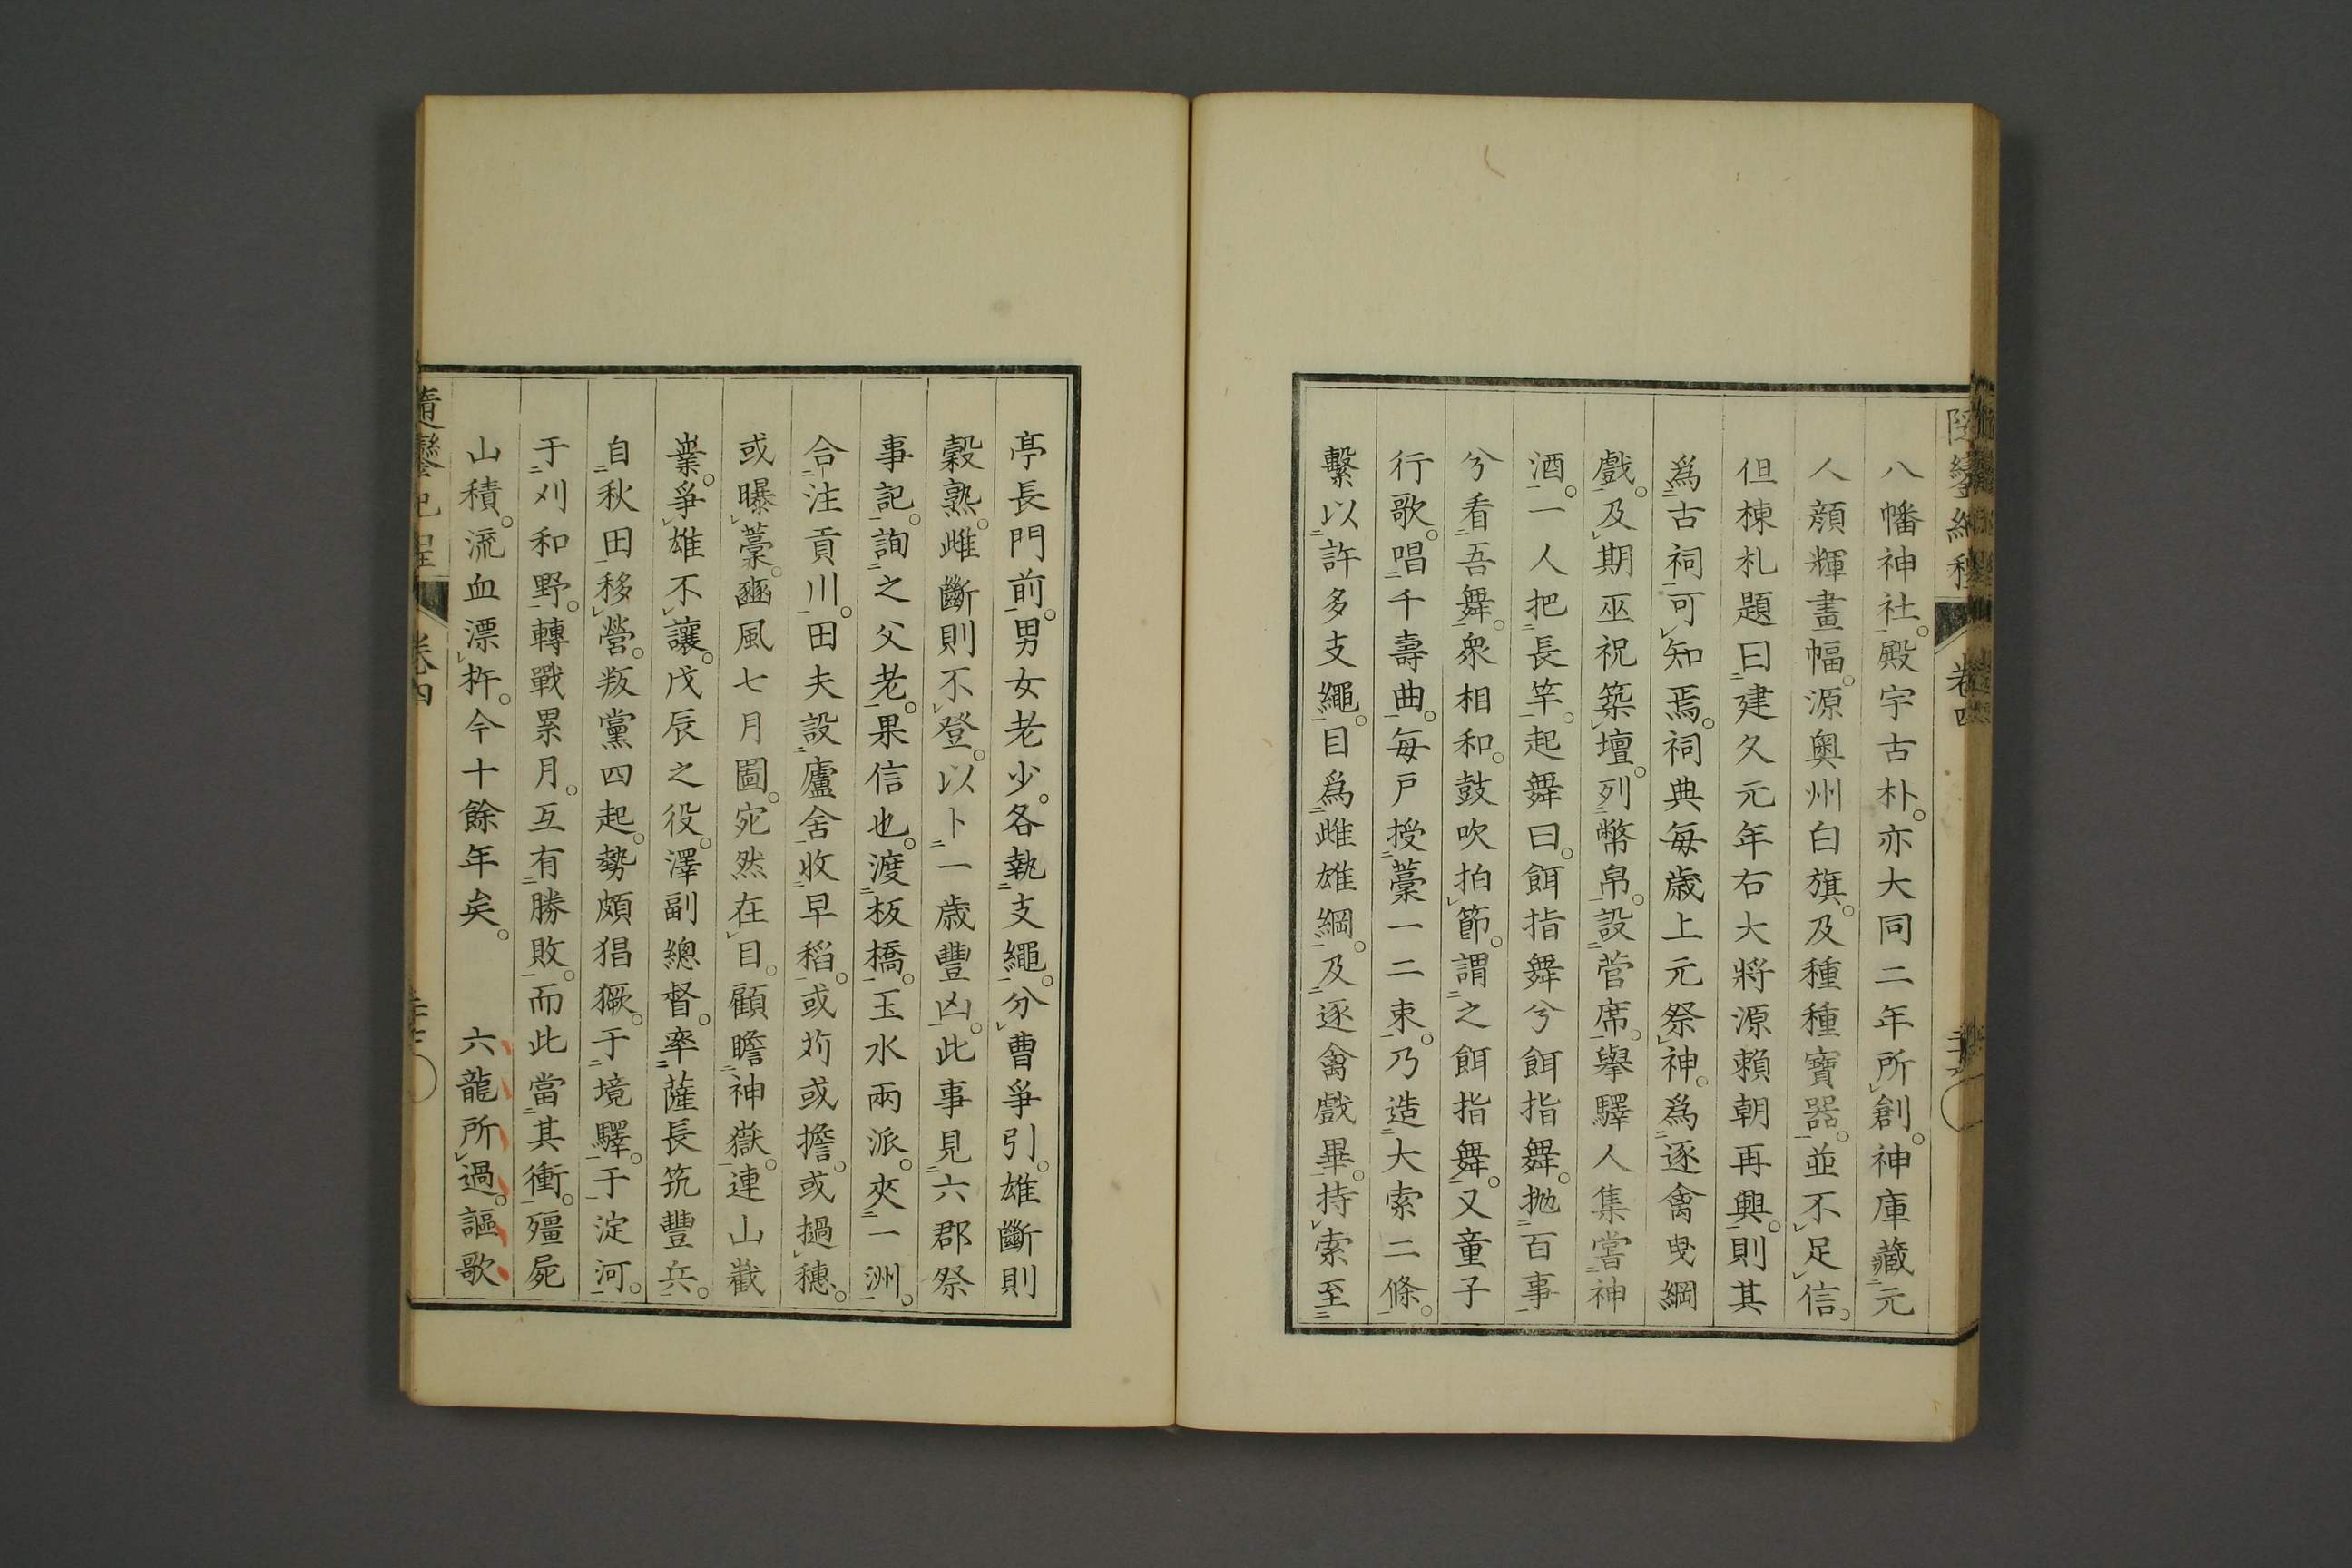 八幡神社。殿宇古朴。亦大同二年所創。神庫藏元
人顏輝畫幅。源奧州白旗。及種種寶器。並不足信。
但棟札題曰建久元年右大將源賴朝再興。則其
爲古祠可知焉。祠典每歲上元祭神。爲逐禽曳綱
戲。及期巫祝築壇。列幣帛。設菅席。擧驛人集嘗神
酒。一人把長竿。起舞曰。餌指舞兮餌指舞。抛百事
兮看吾舞。衆相和。鼓吹拍節。謂之餌指舞。又童子
行歌。唱千壽曲。每戶授藁一二束。乃造大索二條。
繫以許多支繩。目爲雌雄綱。及逐禽戲畢。持索至
亭長門前。男女老少。各執支繩。分曹爭引。雄斷則
穀熟。雌斷則不登。以卜一歲豐凶。此事見六郡祭
事記。詢之父老。果信也。渡板橋。玉水兩派。夾一洲。
合注貢川。田夫設廬舍。收早稻。或苅或擔。或撾穗。
或曝藁。豳風七月圖。宛然在目。顧瞻神嶽。連山戴
業。爭雄不讓。戊辰之役。澤副總督。率薩長筑豐兵。
自秋田移營。叛黨四起。勢頗猖獗。于境驛。于淀河。
于刈和野。轉戰累月。互有勝敗。而此當其衝。殭屍
山積。流血漂杵。今十餘年矣。　六龍所過。謳歌